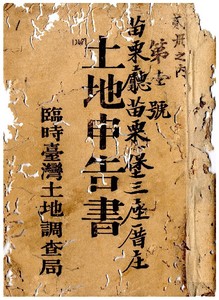 第壹號
苗栗廳苗栗堡三座厝庄
土地申告書
臨時臺灣土地調查局